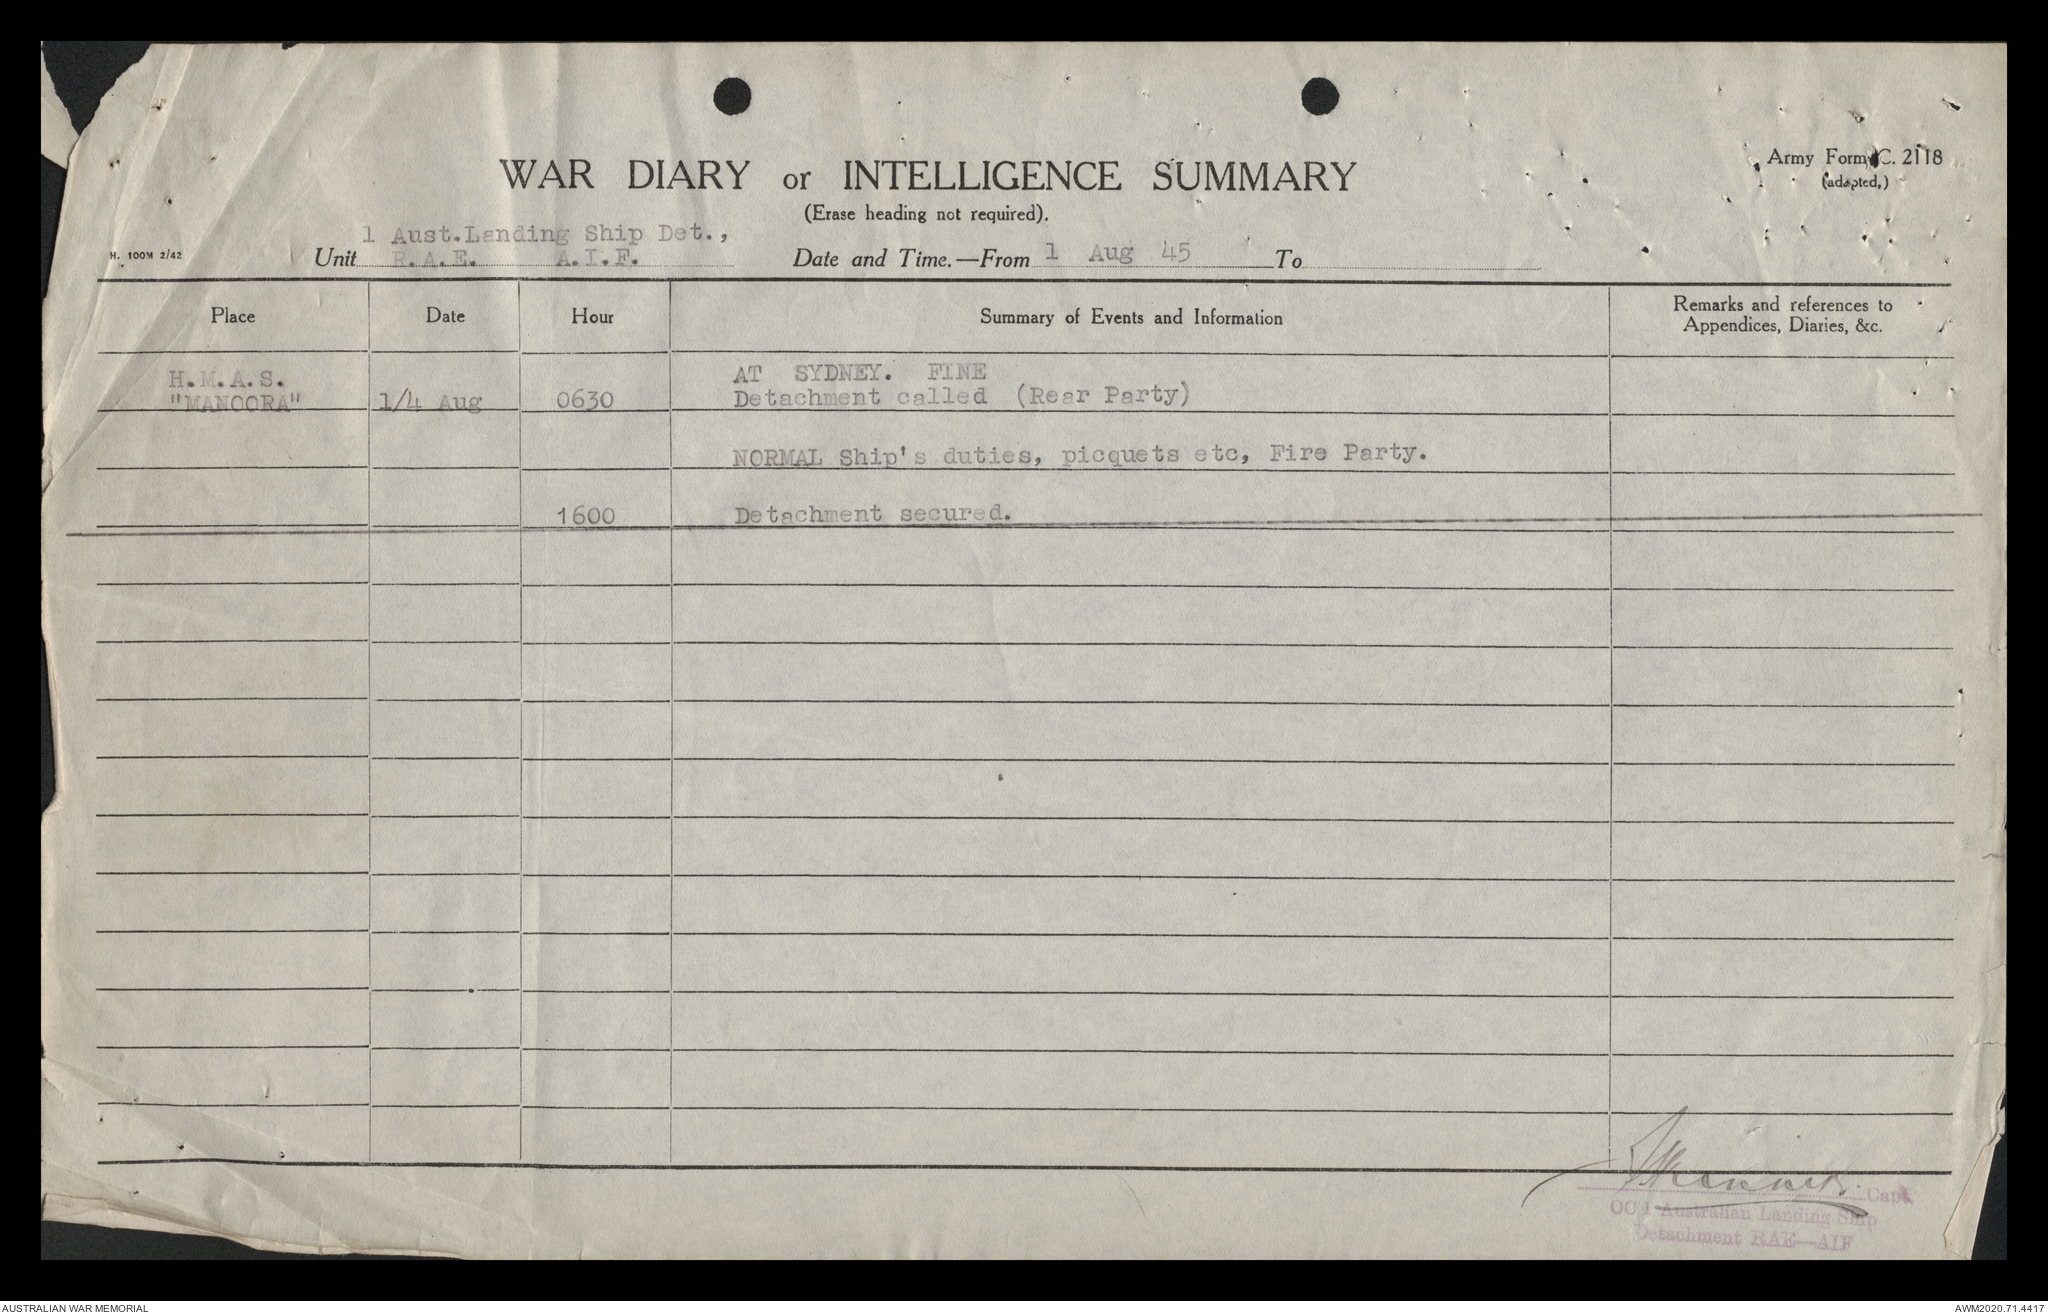 WAR DIARY or INTELLIGENCE SUMMARY
Army Form C. 2118
(adapted,)
(Erase heading not required).
1 Aust.Landing Ship Det.,
H. 100M 2/42 Unit R.A.E. A.I.F. Date and Time.—From 1 Aug 45 To
Place Date Hour Summary of Events and Information Remarks and references to
Appendices, Diaries, &c.
H.M.A.S. AT SYDNEY. FINE
"MANOORA" 1/4 Aug 0630 Detachment called (Rear Party)
NORMAL Ship's duties, picquets etc, Fire Party.
1600 Detachment secured.
Capt.
OC 1 Australian Landing Ship
Detachment RAE—AIF
AUSTRALIAN WAR MEMORIAL AWM2020.71.4417